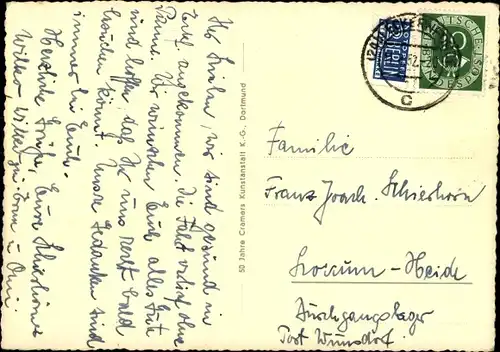 Ihr Lieben, wir sind gesund in
angekommen. Die Fahrt verlief ohne
Panne. Wir wünschen Euch alles Gute
und hoffen, daß Ihr uns recht bald
besuchen könnt. Unsere Gedanken sind
immer bei Euch.
Herzliche Grüße, Eure
Willer, Willer u. Omi
50 Jahre Cramers Kunstanstalt K.-G., Dortmund
DEUTSCHE POST
NOTOPFER
2 BERLIN
STEUERMARKE
52
c
Familie
Franz Joach. Schierhorn
Loccum-Heide
Durchgangslager
Post Wunsdorf.